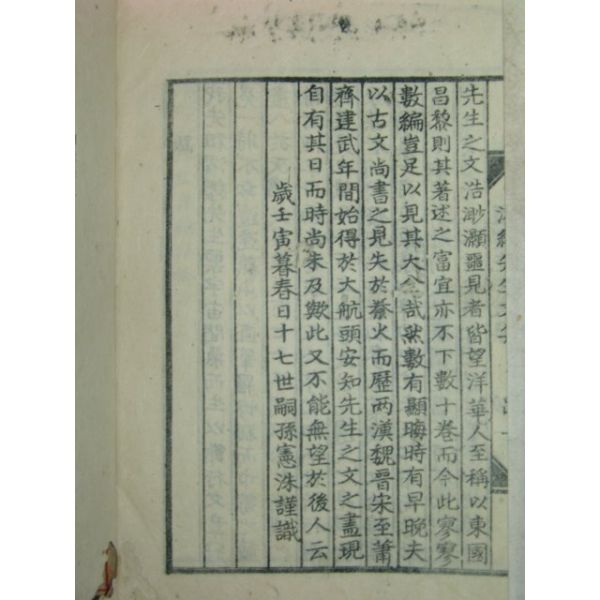 先生之文浩渺灝噩見者皆望洋華人至稱以東國
昌黎則其著述之富宜亦不下數十卷而今此寥寥
數編豈足以見其大全哉然數有顯晦時有早晚夫
以古文尚書之見失於秦火而歷两漢魏晋宋至蕭
齊建武年間始得於大航頭安知先生之文之盡現
自有其日而時尚未及歟此又不能無望於後人云
歲壬寅暮春日十七世嗣孫憲洙謹識